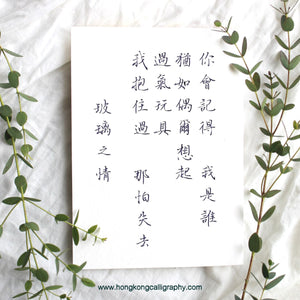 你會記得 我是誰
猶如偶爾想起
過氣玩具
我抱住過 那怕失去
玻璃之情
www.hongkongcalligraphy.com